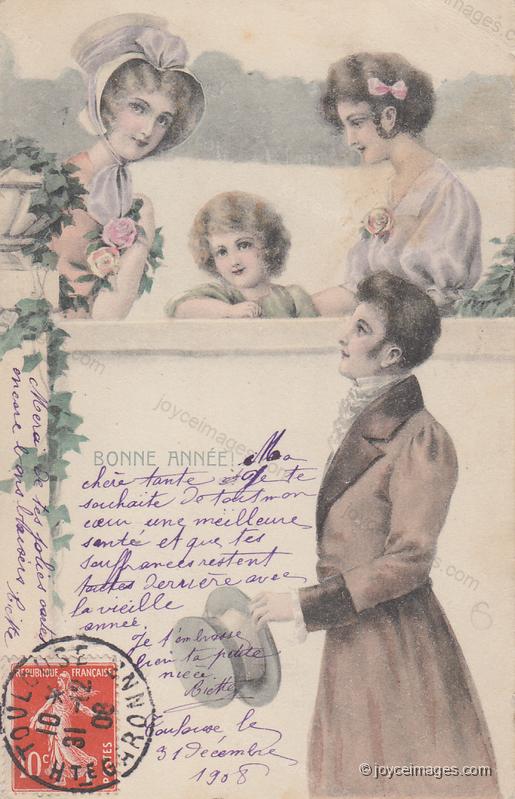 BONNE ANNÉE! Ma
chère tante Je te
souhaite de tout mon
cœur une meilleure
santé et que tes
souffrances restent
toutes derrière avec
la vieille
année.
Je t'embrasse
bien ta petite
nièce.
Toulouse le
31 décembre
1908
Merci de tes jolies cartes
encore
REPUBLIQUE FRANÇAISE
10c POSTES
TOULOUSE
HTE GARONNE
31 12
08
joyceimages.com
joyceimages.com
joyceimages.com
© joyceimages.com